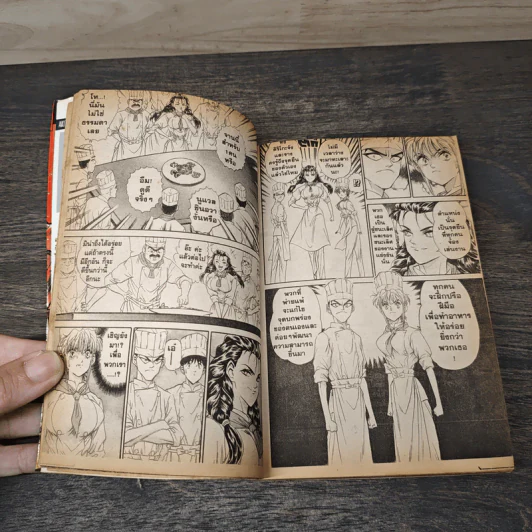 โห..!
นี่มัน
ไม่ใช่
ธรรมดา
เลย
จานนี้
สำหรับ
1 คน
หรือ
อืม!
ดูดี
จริงๆ
นูแวล
กันหรือ
มีน่าถึงได้อร่อย
แต่ถ้าตรงนี้
มีอีกอัน ก็จะ
ดีขึ้นกว่านี้
อีกนะ
อ๊ะ ค่ะ
แล้วต่อไป
จะทำค่ะ
เชิญยัง
มา!?
เพื่อ
พวกเรา
...!?
เอ๋
ไม่มี
เวลาว่าง
จะมาทะเลาะ
กันแล้ว
แล้วใส่ใหม่
พวก
เธอ
นั้น
ตำแหน่ง
นั้น
เป็นจุดยืน
ที่ทุกคน
จ้อง
เล่นงาน
พวกที่
พ่ายแพ้
จะแก้ไข
จุดบกพร่อง
ของตนเองและ
ค่อยๆพัฒนา
ความสามารถ
ขึ้นมา
ทุกคน
จะฝึกปรือ
ฝีมือ
เพื่อทำอาหาร
ให้อร่อย
ยิ่งกว่า
พวกเธอ
!